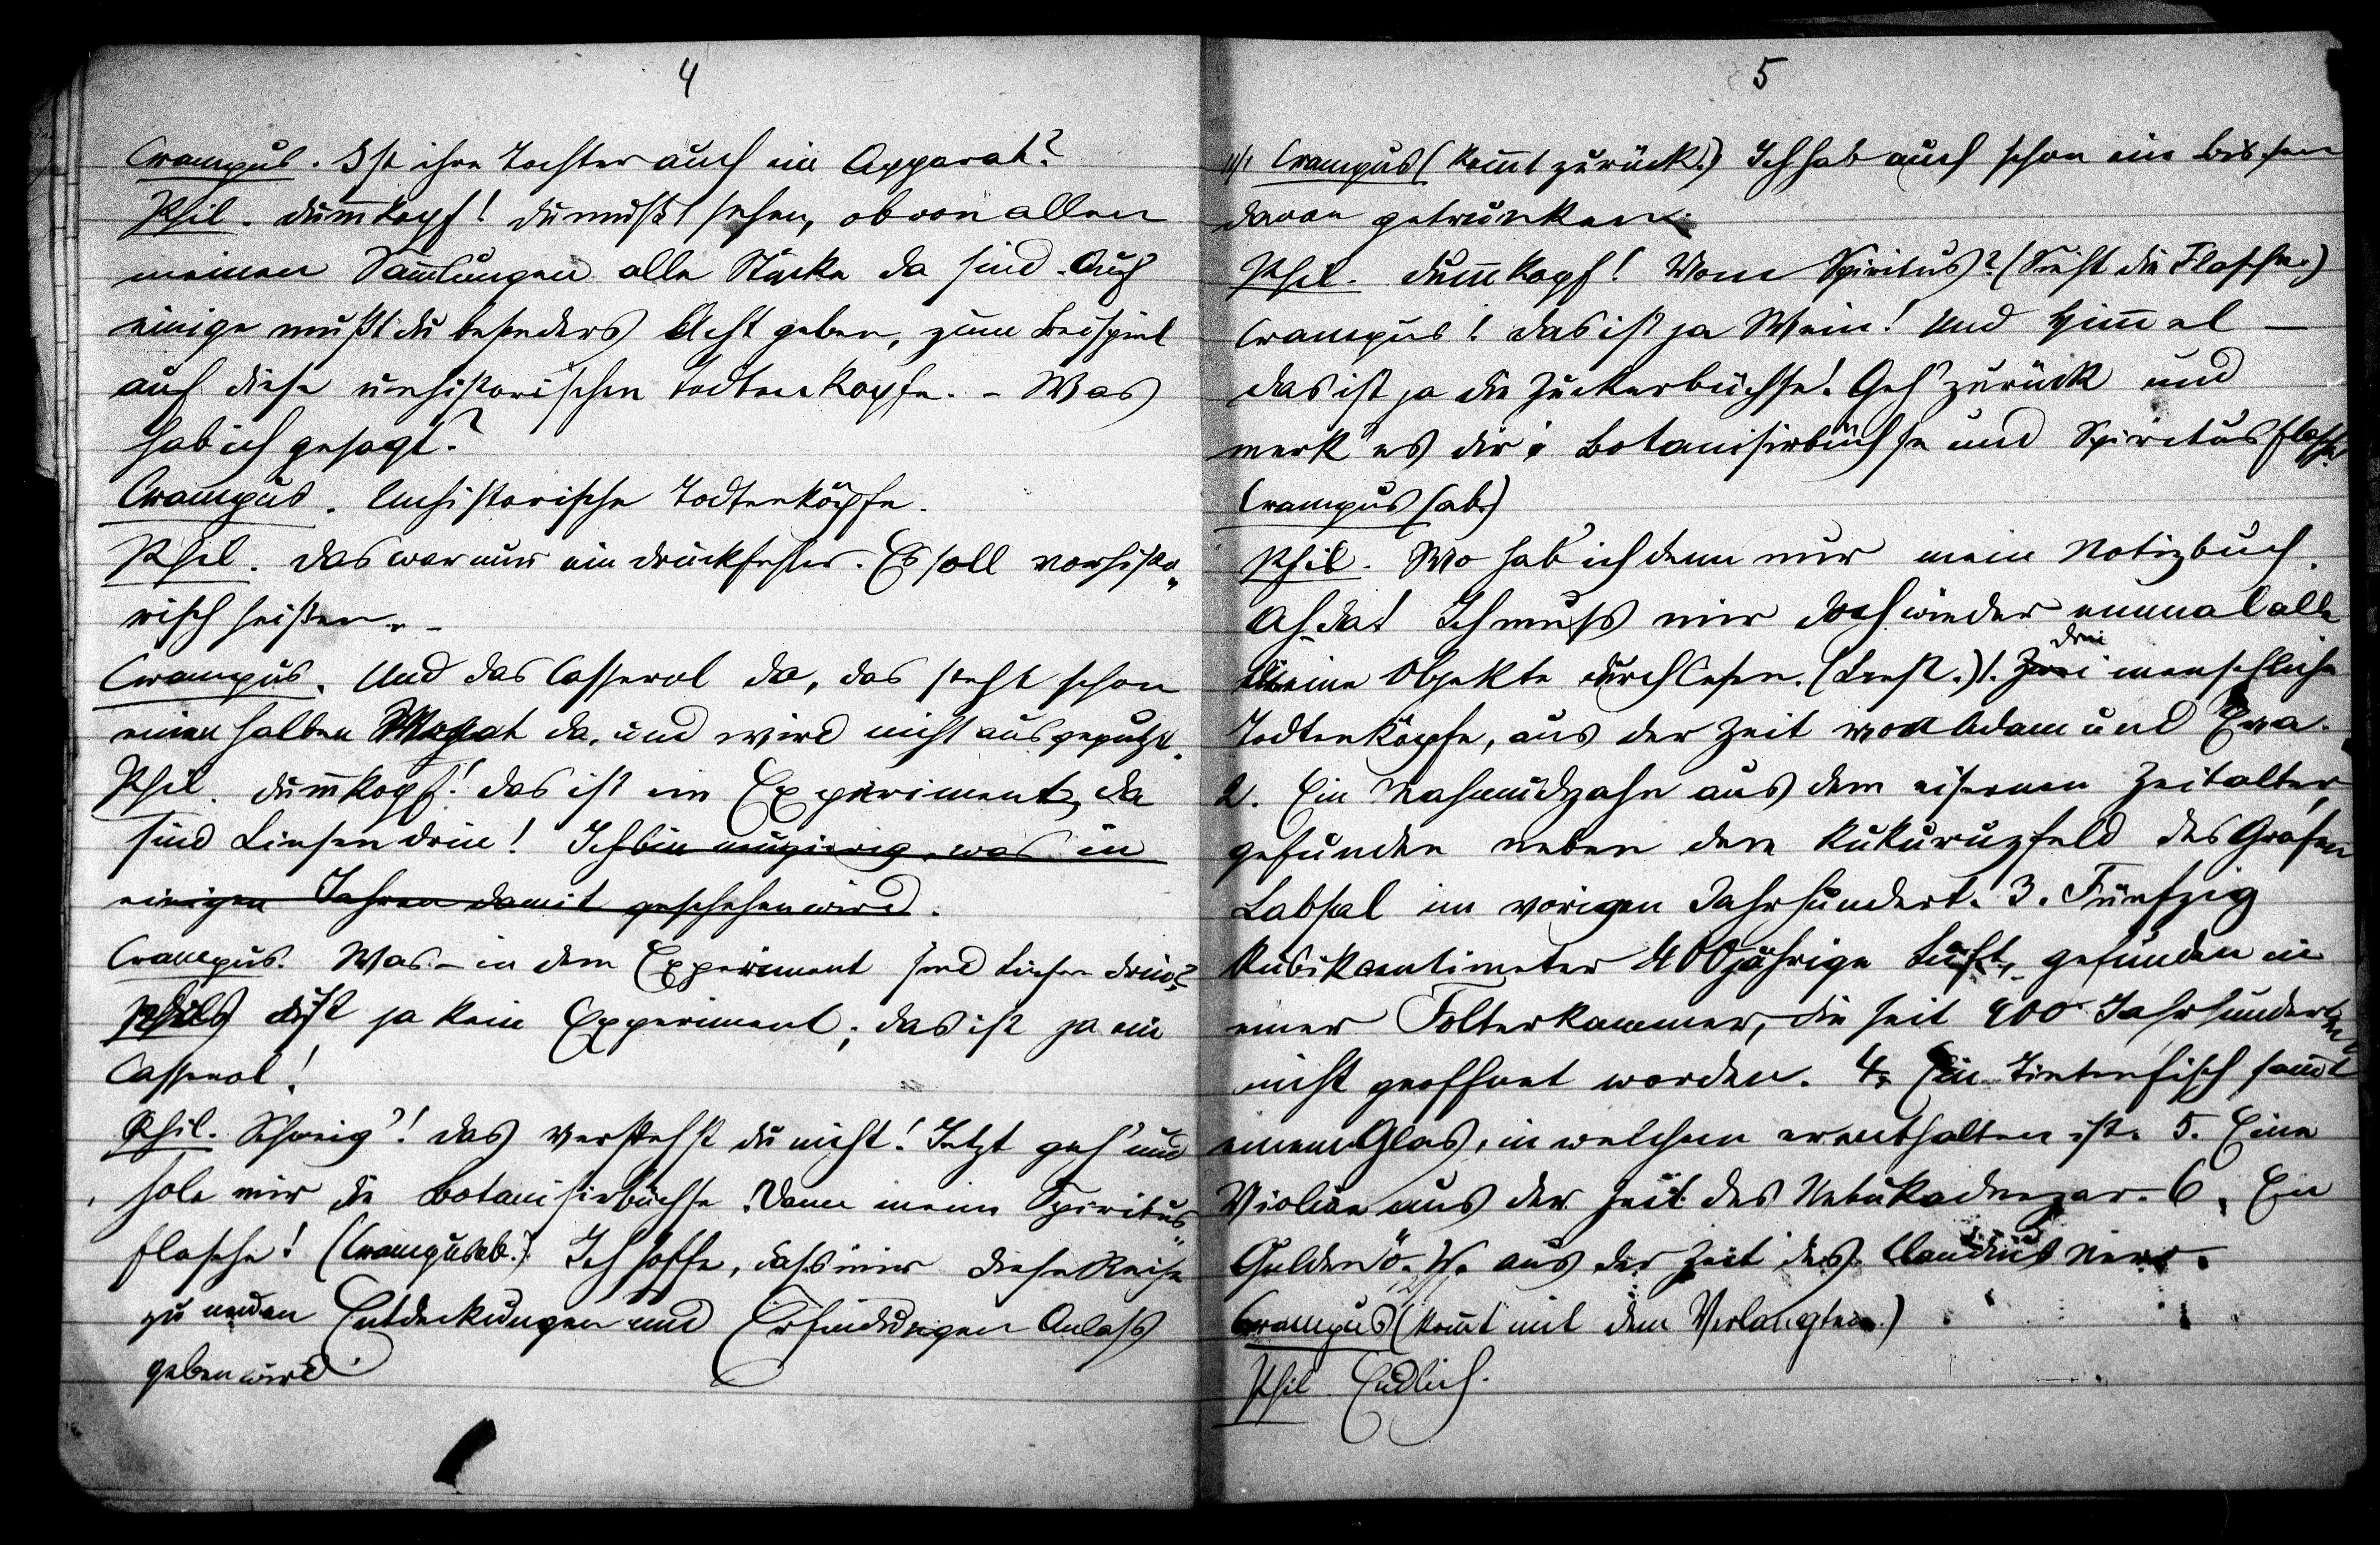 4
Crampus. Ist ihre Tochter auch ein Apparat?
Phil. Dum̅kopf! Du mußt sehen, ob von allen
meinen Sam̅lungen alle Stücke da sind. Auf
einige mußt du besonders Acht geben, zum Beispiel
auf diese unhistorischen Todtenkopfe. – Was
hab ich gesagt?
Crampus. Unhistorische Todtenköpfe.
Phil. Das war nur ein Druckfehler. Es soll vorhisto„
risch heißen. –
Crampus. Und das Casserol da, das steht schon
einen halben Monat da, und wird nicht ausgeputzt.
Phil. Dum̅kopf! das ist ein Experiment, da
sind Linsen drin! Ich bin neugierig, was in
einigen Jahren damit geschehen wird.
Crampus. Was – in dem Experiment sind Linsen drin?
ist ja kein Experiment; das ist ja ein
Casserol!
Phil. Schweig'! das verstehst du nicht! Jetzt geh' und
hole mir die Botanisirbüchse. Dann meine Spiritus„
flasche! (Crampus ab.) Ich hoffe, dass mir diese Reise
zu neuen Entdeckungen und Erfindungen Anlass
geben wird.
5
Crampus (kom̅t zurück.) Ich hab auch schon ein Bischen
davon getrunken.
Phil. Dum̅kopf! Vom Spiritus? (Sieht die Flasche.)
Crampus! das ist ja Wein! Und Him̅el –
das ist ja die Zuckerbüchse! Geh' zurück und
merk' es dir: Botanisirbüchse und Spiritusflasche!
Crampus (ab.)
Phil. Wo hab' ich denn nur mein Notizbuch.
Ah da! Ich muss mir doch wieder einmal alle
meine Objekte durchlesen. (Liest.) 1. Zwei drei menschliche
Todtenköpfe, aus der Zeit von Adam und Eva.
2. Ein Mahmudzahn aus dem eisernen Zeitalter,
gefunden neben dem Kukuruzfeld des Grafen
Labsal im vorigen Jahrhundert. 3. Fünfzig
Kubikcentimeter 400jährige Luft, gefunden in
einer Folterkammer, die seit 400 Jahrhunderten
nicht geöffnet worden. 4. Ein Tintenfisch sam̅t
einem Glas, in welchem er enthalten ist. 5. Eine
Violine aus der Zeit des Nebukadnezar. 6. Ein
Gulden ö. W. aus der Zeit des Claudius Nero.
Crampus (kom̅t mit dem Verlangten.)
Phil. Endlich.